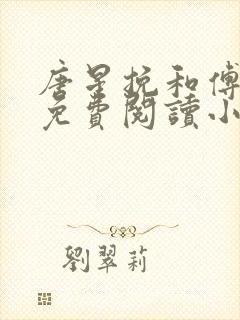 唐星挽和傅
免費閱讀小
劉翠莉